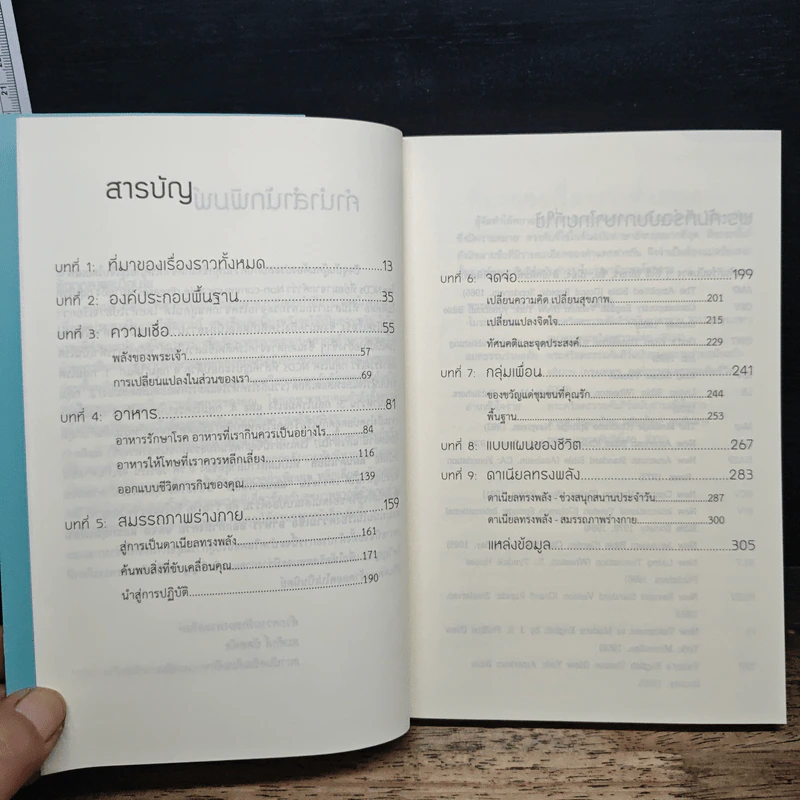 สารบัญ
บทที่ 1: ที่มาของเรื่องราวทั้งหมด 13
บทที่ 2: องค์ประกอบพื้นฐาน 35
บทที่ 3: ความเชื่อ 55
พลังของพระเจ้า 57
การเปลี่ยนแปลงในส่วนของเรา 69
บทที่ 4: อาหาร 81
อาหารรักษาโรค อาหารที่เรากินควรเป็นอย่างไร 84
อาหารให้โทษที่เราควรหลีกเลี่ยง 116
ออกแบบชีวิตการกินของคุณ 139
บทที่ 5: สมรรถภาพร่างกาย 159
สู่การเป็นดาเนียลทรงพลัง 161
ค้นพบสิ่งที่ขับเคลื่อนคุณ 171
นำสู่การปฏิบัติ 190
บทที่ 6: จดจ่อ 199
เปลี่ยนความคิด เปลี่ยนสุขภาพ 201
เปลี่ยนแปลงจิตใจ 215
ทัศนคติและจุดประสงค์ 229
บทที่ 7: กลุ่มเพื่อน 241
ของขวัญแด่ชุมชนที่คุณรัก 244
พื้นฐาน 253
บทที่ 8: แบบแผนของชีวิต 267
บทที่ 9: ดาเนียลทรงพลัง 283
ดาเนียลทรงพลัง - ช่วงสนุกสนานประจำวัน 287
ดาเนียลทรงพลัง - สมรรถภาพร่างกาย 300
แหล่งข้อมูล 305